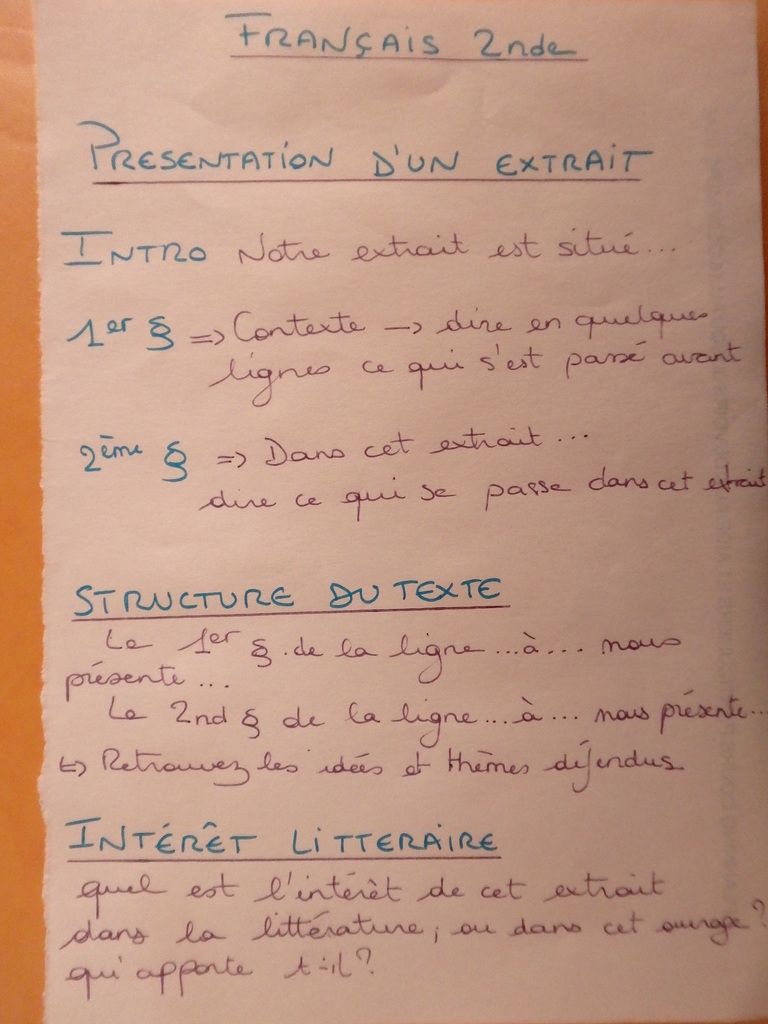 FRANÇAIS 2nde
PRESENTATION D'UN EXTRAIT
INTRO Notre extrait est situé...
1er § => Contexte -> dire en quelques
lignes ce qui s'est passé avant
2ème § => Dans cet extrait...
dire ce qui se passe dans cet extrait
STRUCTURE DU TEXTE
Le 1er § de la ligne...à... nous
présente...
Le 2nd § de la ligne...à... nous présente...
↳ Retrouvez les idées et thèmes défendus
INTÉRÊT LITTERAIRE
quel est l'intérêt de cet extrait
dans la littérature, ou dans cet ouvrage?
qu'apporte t-il?